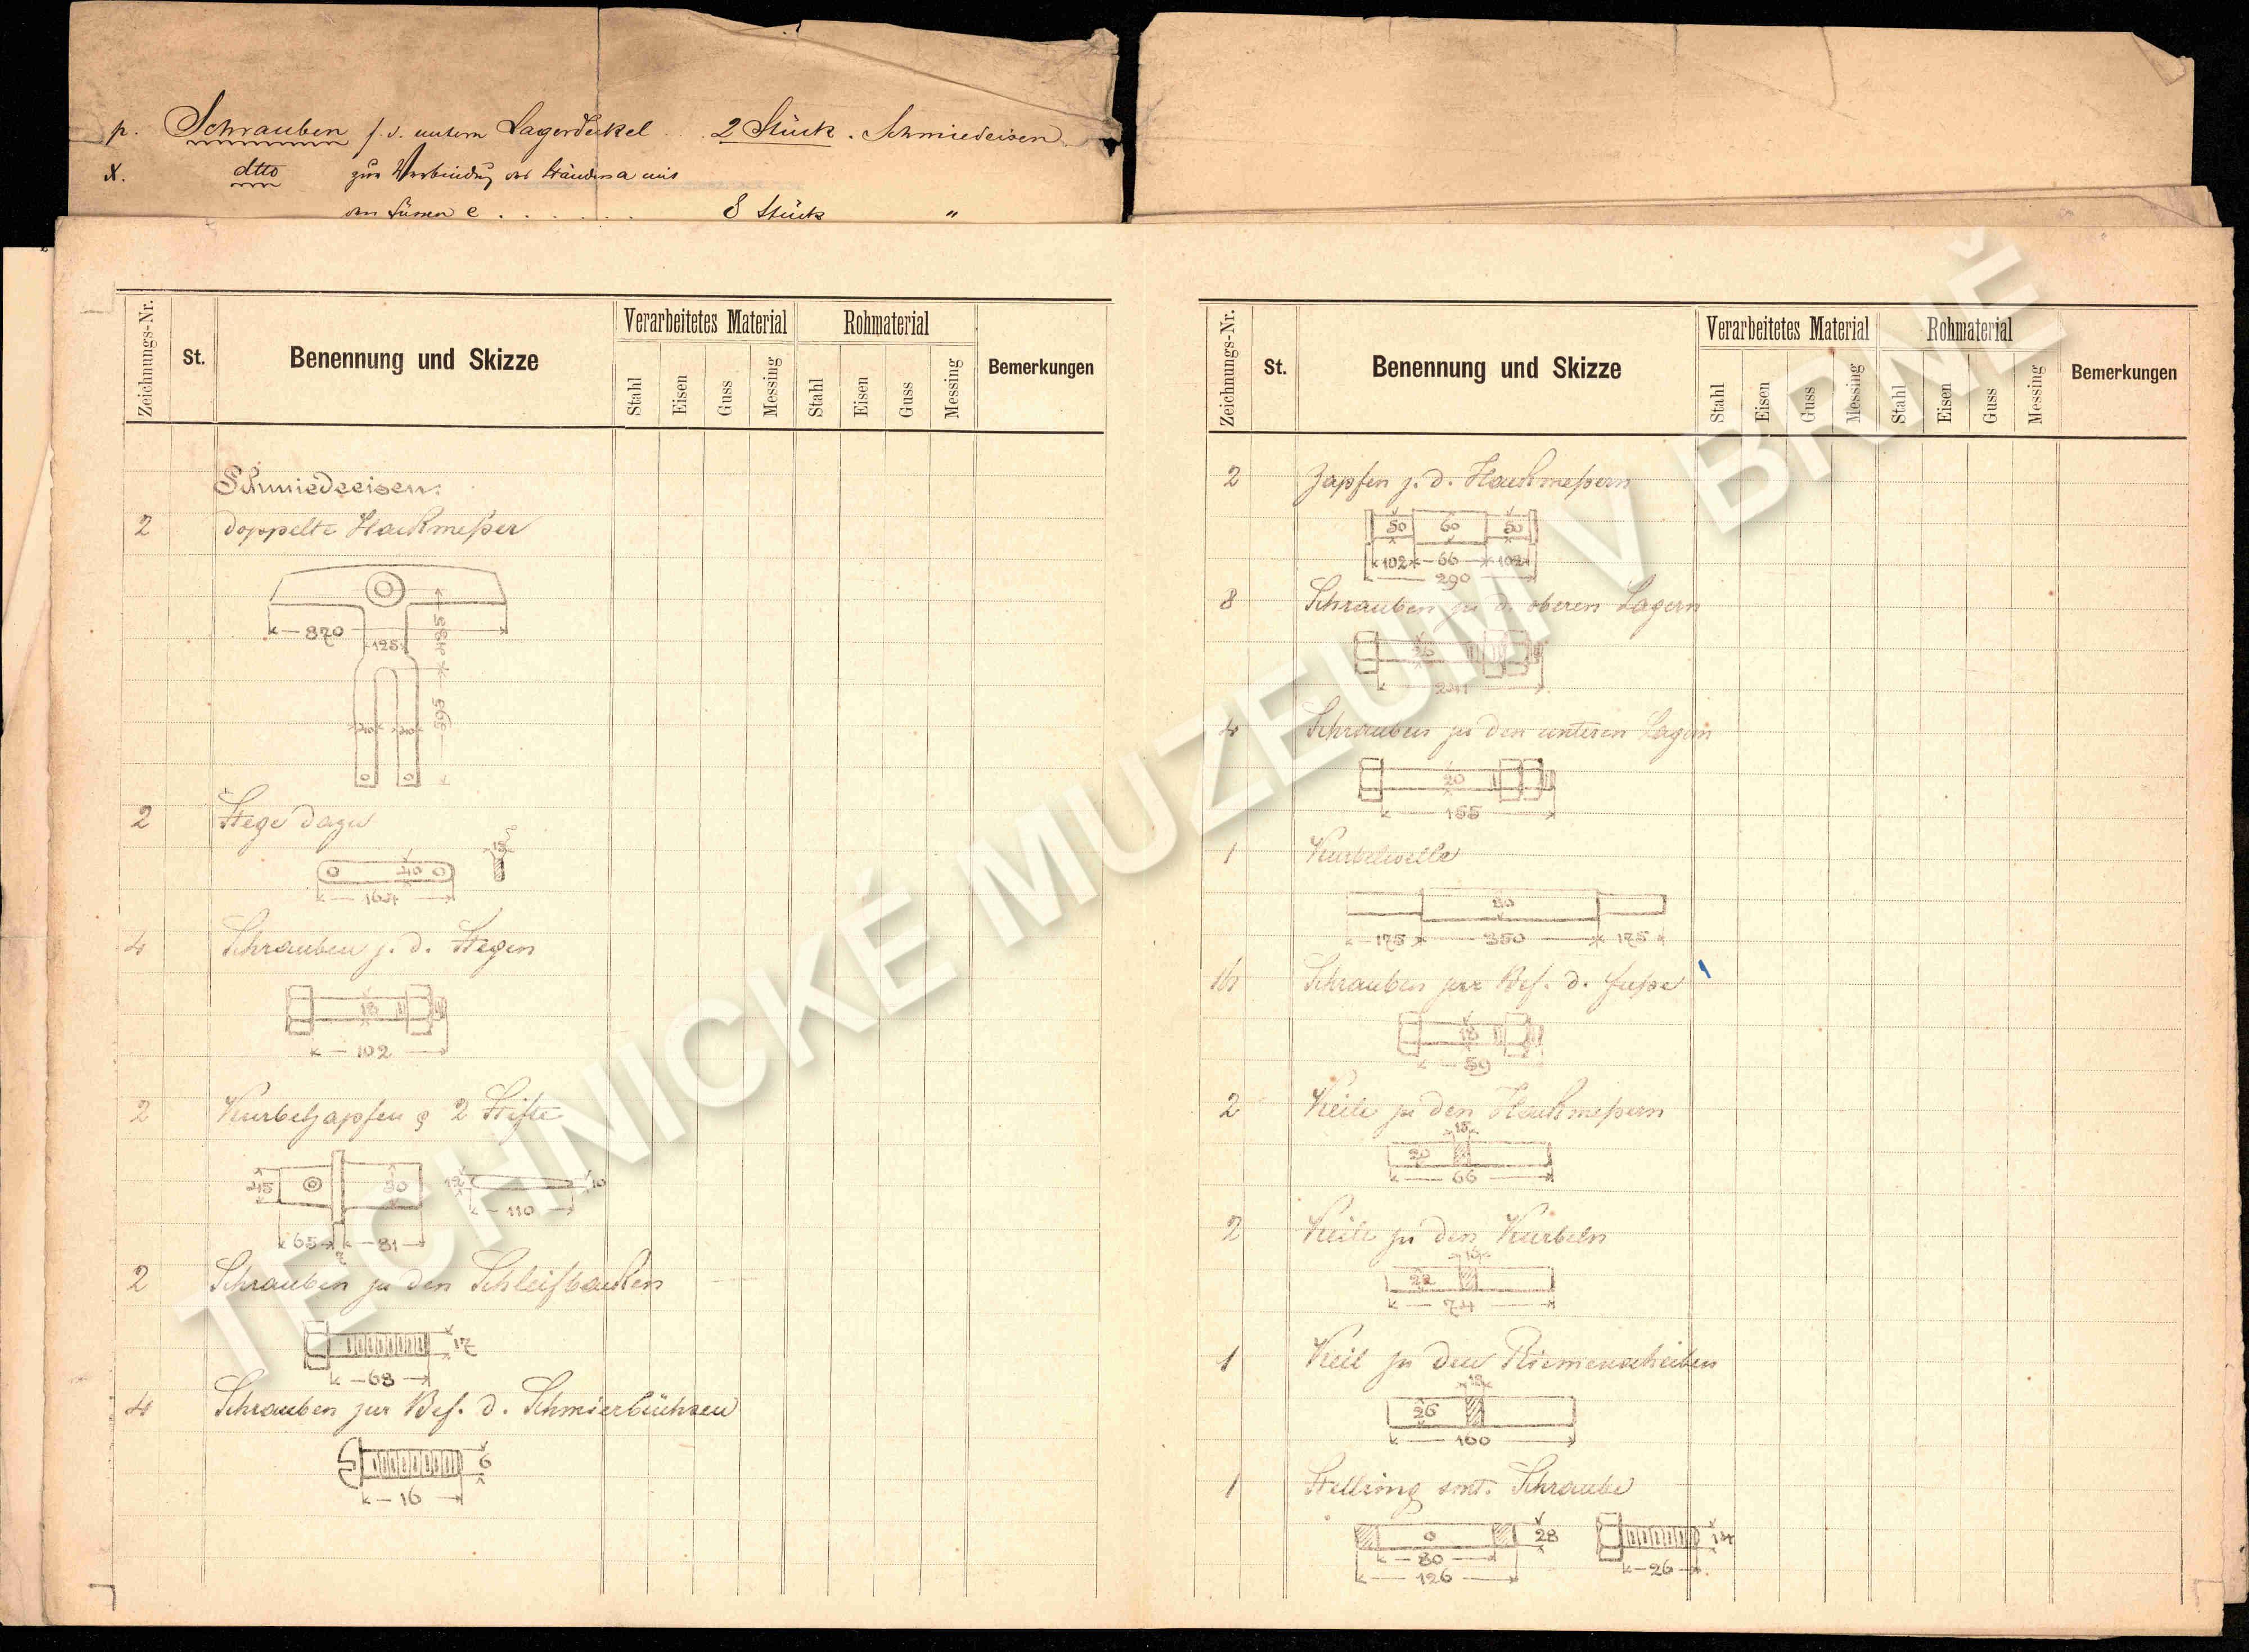 p. Schrauben f. d. untern Lagerdeckel . . . 2 Stück . Schmiedeisen
x. dtto zur Verbindung des Ständers a mit
den Füssen e . . . . . . . 8 Stück "
Zeichnungs-Nr. St. Benennung und Skizze Verarbeitetes Material Rohmaterial Bemerkungen
Stahl Eisen Guss Messing Stahl Eisen Guss Messing
Schmiedeeisen:
2 doppelte Hackmeßer
870
125
485
40 40
565
2 Stege dazu
40
164
4 Schrauben z. d. Stegen
18
102
2 Kurbelzapfen & 2 Stifte
45 50 12 10
110
65 81
2 Schrauben zu den Schleifbacken
17
68
4 Schrauben zur Bef. d. Schmierbüchsen
6
16
Zeichnungs-Nr. St. Benennung und Skizze Verarbeitetes Material Rohmaterial Bemerkungen
Stahl Eisen Guss Messing Stahl Eisen Guss Messing
2 Zapfen z. d. Hackmeßern
50 60 50
102 66 102
290
8 Schrauben zu d. oberen Lagern
4 Schrauben zu den unteren Lagern
20
155
1 Kurbelwelle
80
175 350 175
16 Schrauben zur Bef. d. Fuße
18
59
2 Keile zu den Hackmeßern
15
20
66
2 Keile zu den Kurbeln
22
74
1 Keil zu den Riemenscheiben
18
26
100
1 Stellring smt. Schraube
28 14
80
126 26
TECHNICKÉ MUZEUM V BRNĚ